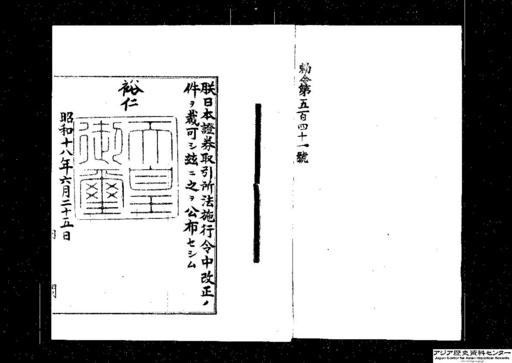 勅令第五百四十一號
朕日本證券取引所法施行令中改正ノ
件ヲ裁可シ玆ニ之ヲ公布セシム
裕仁
天皇
御璽
昭和十八年六月二十五日
アジア歴史資料センター
Japan Center for Asian Historical Records